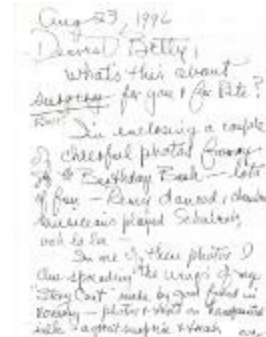 Aug 23, 1996
Dearest Betty,
What's this about
surgery for you & for Pete?
I'm enclosing a couple
of cheerful photos
Birthday Bash — lots
of fun — danced, chamber
musicians played Schubert,
ooh la la —
In one of these photos I
am spreading the wings of my
"Story Coat" made by good friend in
photos & on
silk — a great surprise &
over